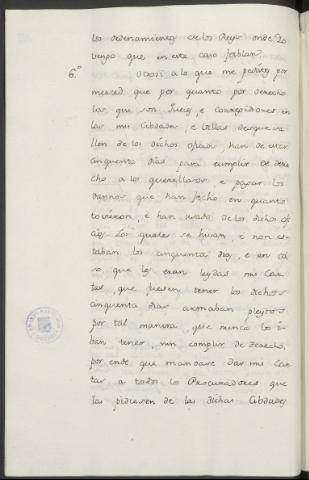 los ordenamientos de los Reys onde Yo
vengo que en este caso fablan.
6.º Otrosi a lo que me pedistes por
merced que por quanto por derecho
los que son Jueces, e Corregidores en
las mis Cibdades, e Villas desque sa
llen de los dichos oficios han de estar
cinquenta dias para cumplir de dere
cho a los querellosos, e pagar los
dannos que han fecho en quanto
tovieron, e han usado de los dichos ofi
cios los quales se huian, e non es
taban los cinquenta dias, e en ca
so que les eran leydas mis Car
tas, que fuesen tener los dichos
cinquenta dias armaban pleytos
por tal manera, que nunca los i
ban tener, nin complir de derecho,
por ende que mandase dar mis Car
tas a todos los Procuradores que
las pidiesen de las dichas Cibdades